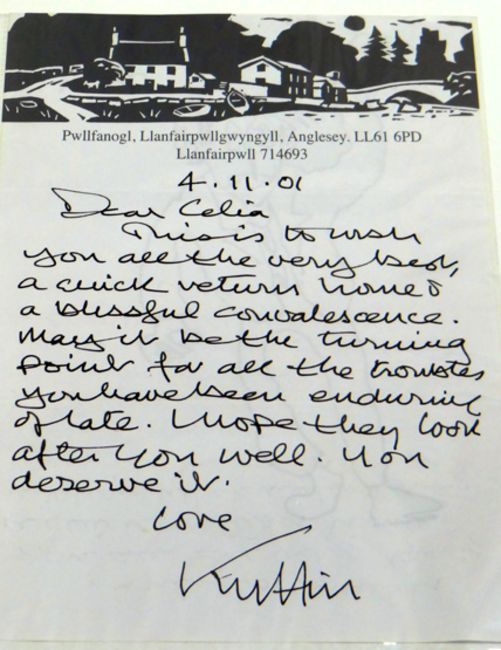 Pwllfanogl, Llanfairpwllgwyngyll, Anglesey. LL61 6PD
Llanfairpwll 714693
4.11.01
Dear Celia
This is to wish
you all the very best,
a quick return home &
a blissful convalescence.
May it be the turning
point for all the troubles
you have been enduring
of late. I hope they look
after you well. You
deserve it.
Love
Kyffin